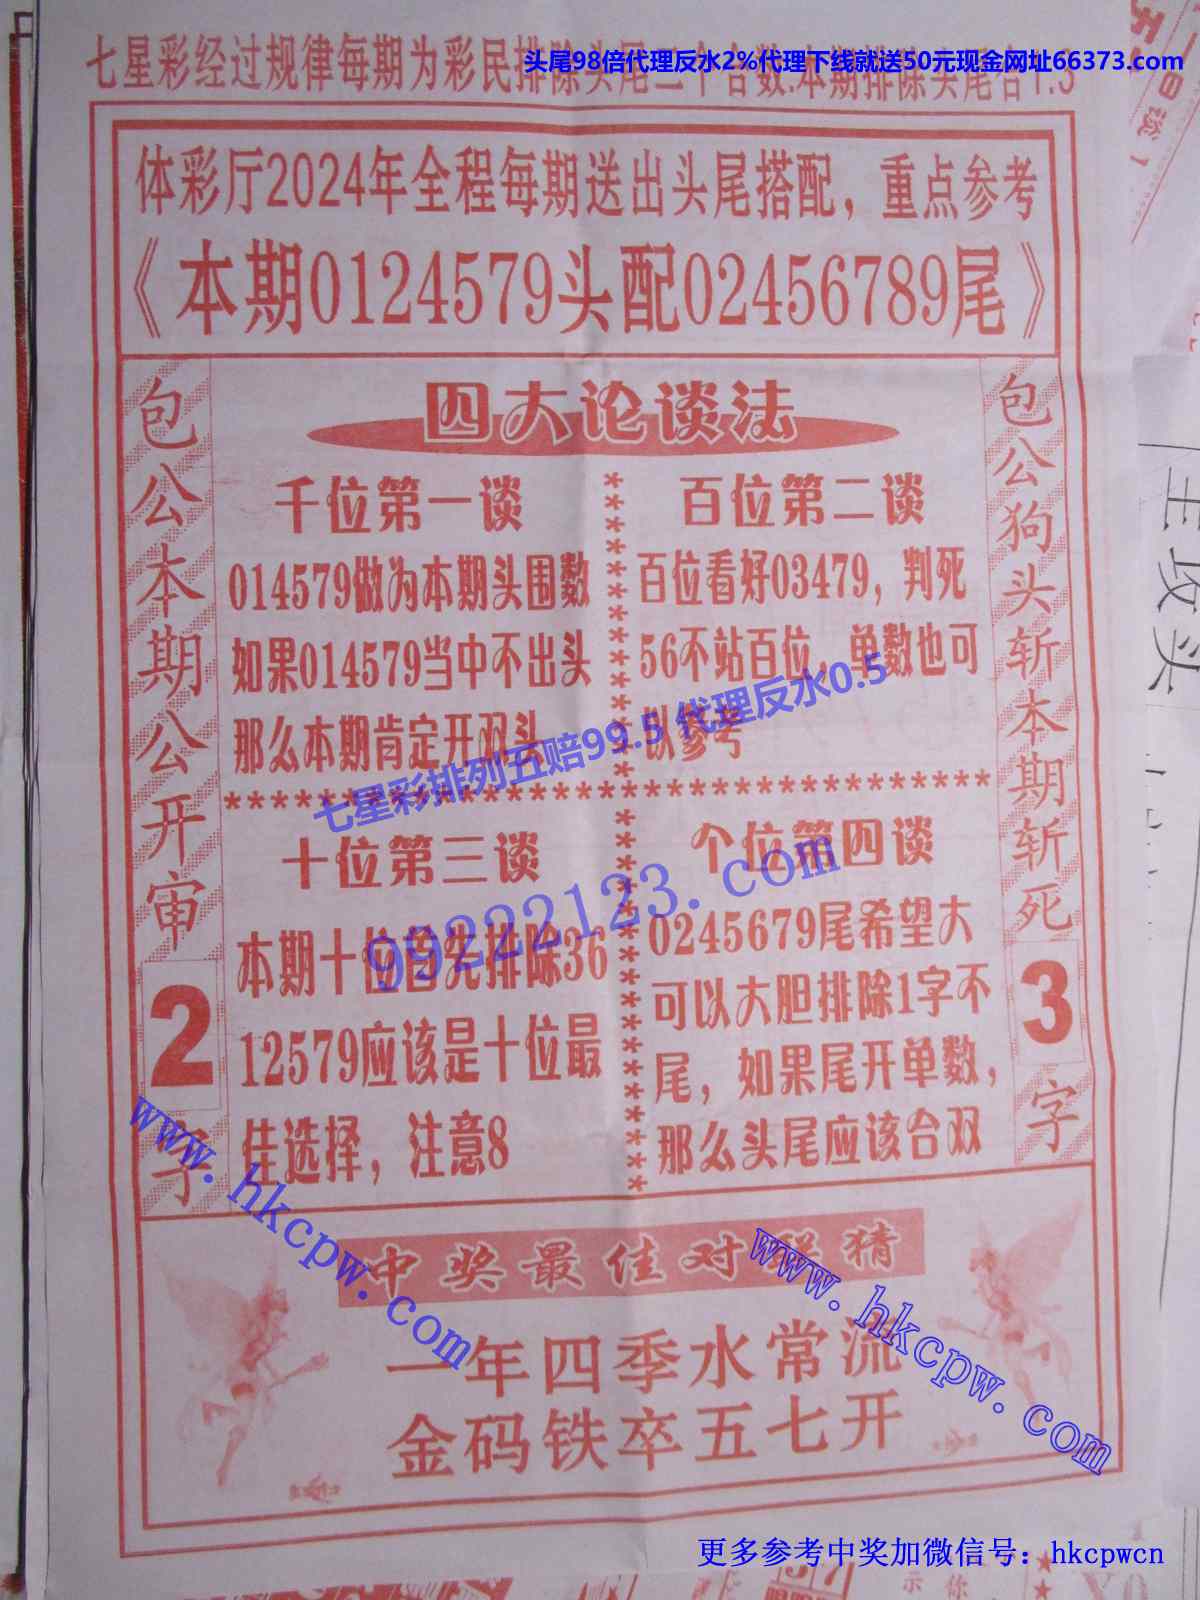 头尾98倍代理反水2%代理下线就送50元现金网址66373.com
七星彩经过规律每期为彩民排除头尾二个合数:本期排除头尾合1.3
体彩厅2024年全程每期送出头尾搭配，重点参考
《本期0124579头配02456789尾》
四大论谈法
包公本期公开审2字
千位第一谈
014579做为本期头围数
如果014579当中不出头
那么本期肯定开双头
百位第二谈
百位看好03479，判死
56不站百位，单数也可
以参考
七星彩排列五赔99.5 代理反水0.5
99222123.com
十位第三谈
本期十位首先排除36
12579应该是十位最
佳选择，注意8
个位第四谈
0245679尾希望大
可以大胆排除1字不
尾，如果尾开单数，
那么头尾应该合双
包公狗头斩本期斩死3字
www.hkcpw.com
www.hkcpw.com
中奖最佳对联猜
一年四季水常流
金码铁卒五七开
主攻头
更多参考中奖加微信号：hkcpwcn
示你